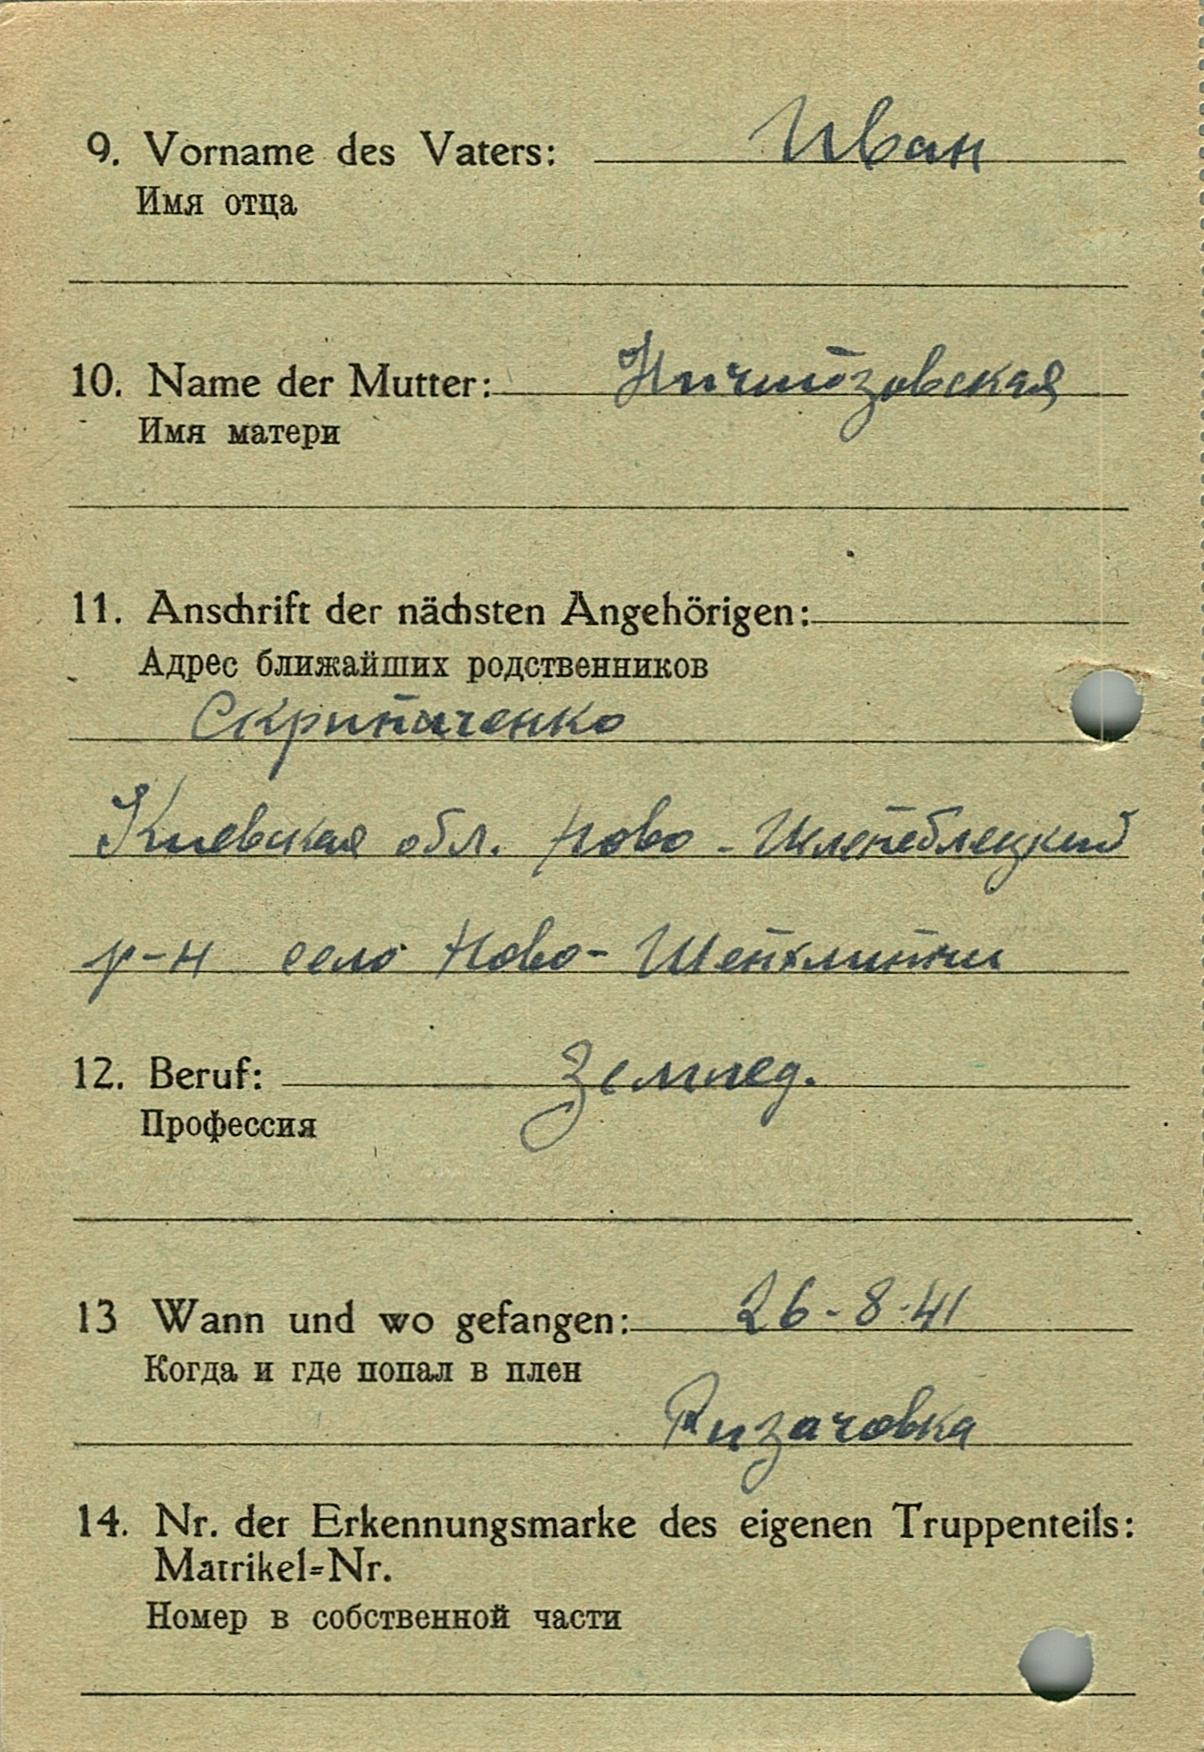 9. Vorname des Vaters: Иван
Имя отца
10. Name der Mutter:
Имя матери
11. Anschrift der nächsten Angehörigen:
Адрес ближайших родственников
Скрипаченко
Киевская обл. Ново-
р-н село Ново-
12. Beruf: Землед.
Профессия
13 Wann und wo gefangen: 26-8-41
Когда и где попал в плен
Ризачовка
14. Nr. der Erkennungsmarke des eigenen Truppenteils:
Matrikel=Nr.
Номер в собственной части